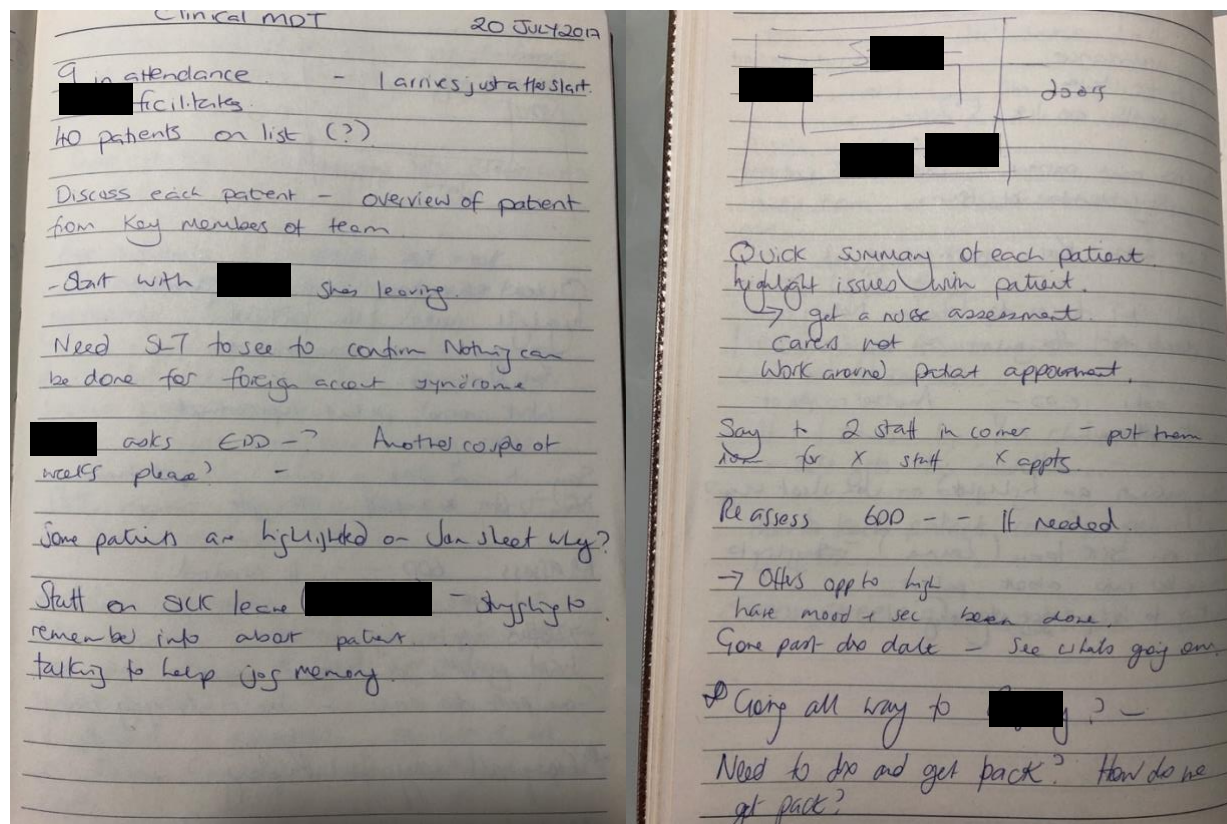 Clinical MDT
20 JULY 2017
9 in attendance - I arrives just after start.
ficilitates
40 patients on list (?)
Discuss each patient - overview of patient
from Key members of team
- Start with shes leaving.
Need SLT to see to confirm Nothing can
be done for foreign accent syndrome
asks EDD - ? Another couple of
weeks please? -
Some patients are highlighted on Jan sheet why?
Staff on sick leave ( - struggling to
remember info about patient
talking to help jog memory.
doors
Quick summary of each patient
highlight issues with patient.
→ get a nurse assessment.
carers not
Work around patient appointment.
Say to 2 staff in corner - put them
for X staff X appts
Reassess EDD - - If needed.
→ Offers opp to high
have mood + sec been done.
Gone past dis date - See whats going on.
Going all way to ? -
Need to and get pack? How do we
get pack?